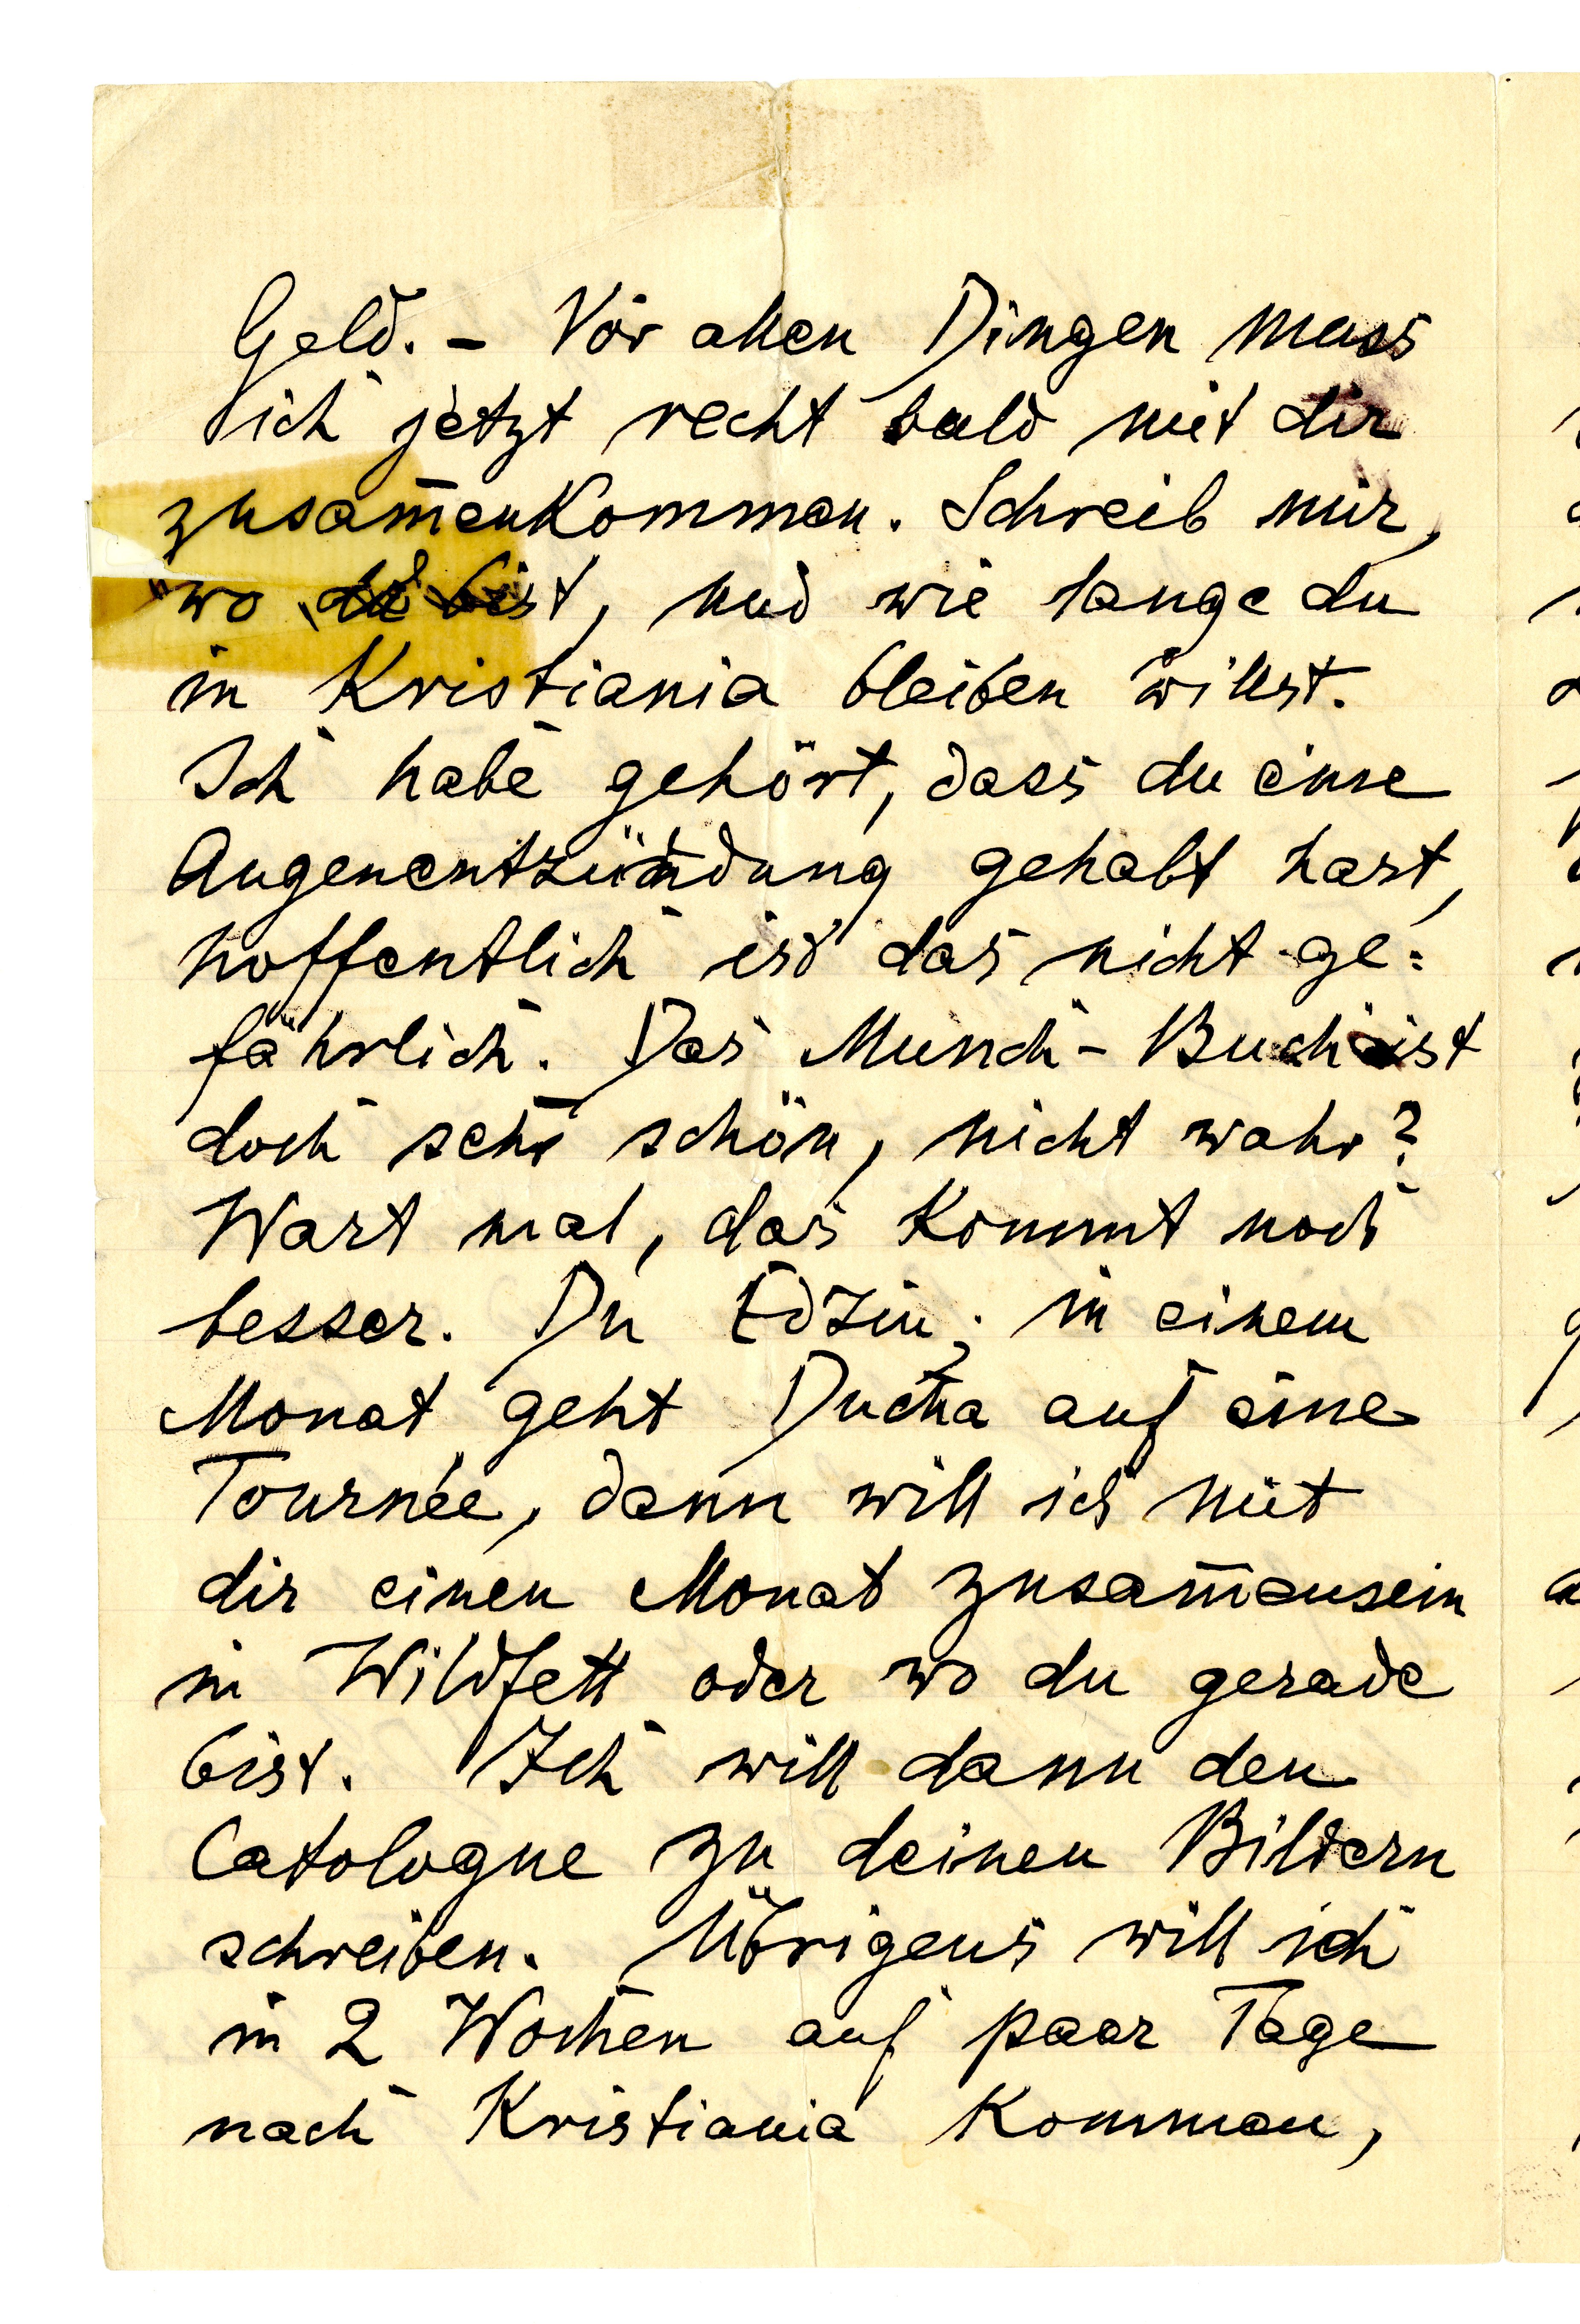 Geld. – Vor allen Dingen muss
ich jetzt recht bald mit dir
zusam̄enkommen. Schreib mir,
wo du bist, und wie lange du
in Kristiania bleiben willst.
Ich habe gehört, dass du eine
Augenentzündung gehabt hast,
hoffentlich ist das nicht ge=
fährlich. Das Munch-Buch ist
doch sehr schön, nicht wahr?
Wart mal, das kommt noch
besser. Du Edzin; in einem
Monat geht Ducha auf eine
Tournée, dann will ich mit
dir einen Monat zusam̄ensein
in Wildfett oder wo du gerade
bist. Ich will dann den
Catologue zu deinen Bildern
schreiben. Übrigens will ich
in 2 Wochen auf paar Tage
nach Kristiania kommen,